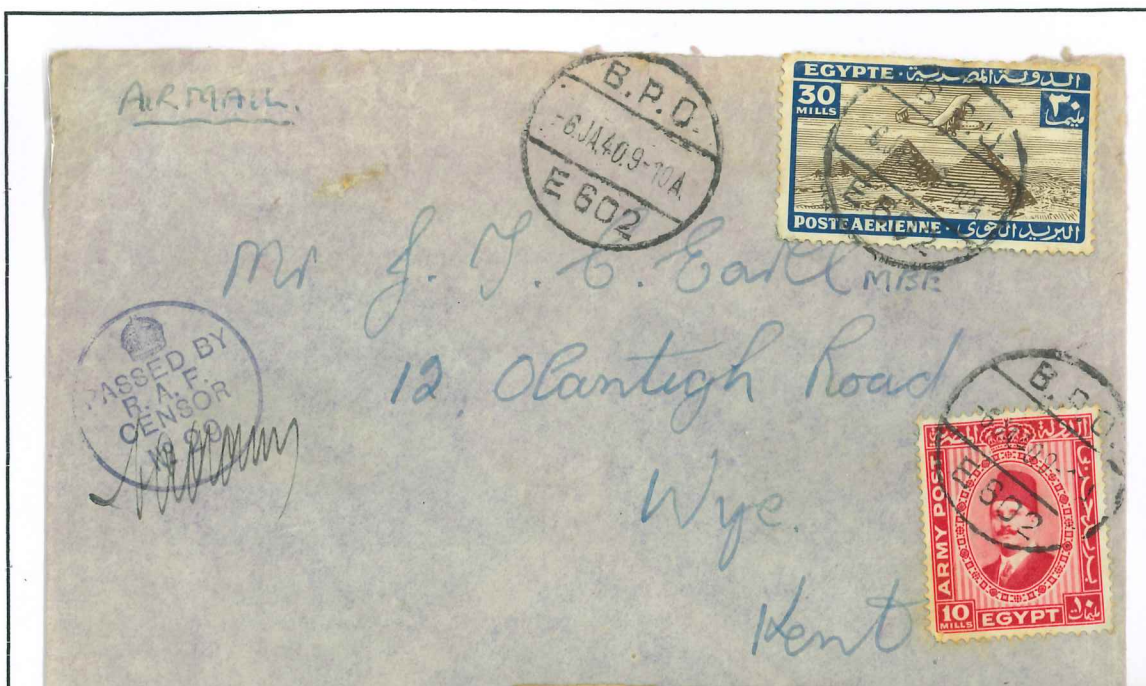 AIRMAIL.
B.P.O.
-6.JA.40.9-10A
E 602
EGYPTE · الدولة المصرية
30 MILLS
٣٠ مليما
POSTE AERIENNE · البريد الجوى
B.P.O.
E 602
Mr J. T. C. Earll MBE
12, Olantigh Road
Wye.
Kent
PASSED BY
R. A. F.
CENSOR
B.P.O.
E 602
ARMY POST
10 MILLS
EGYPT